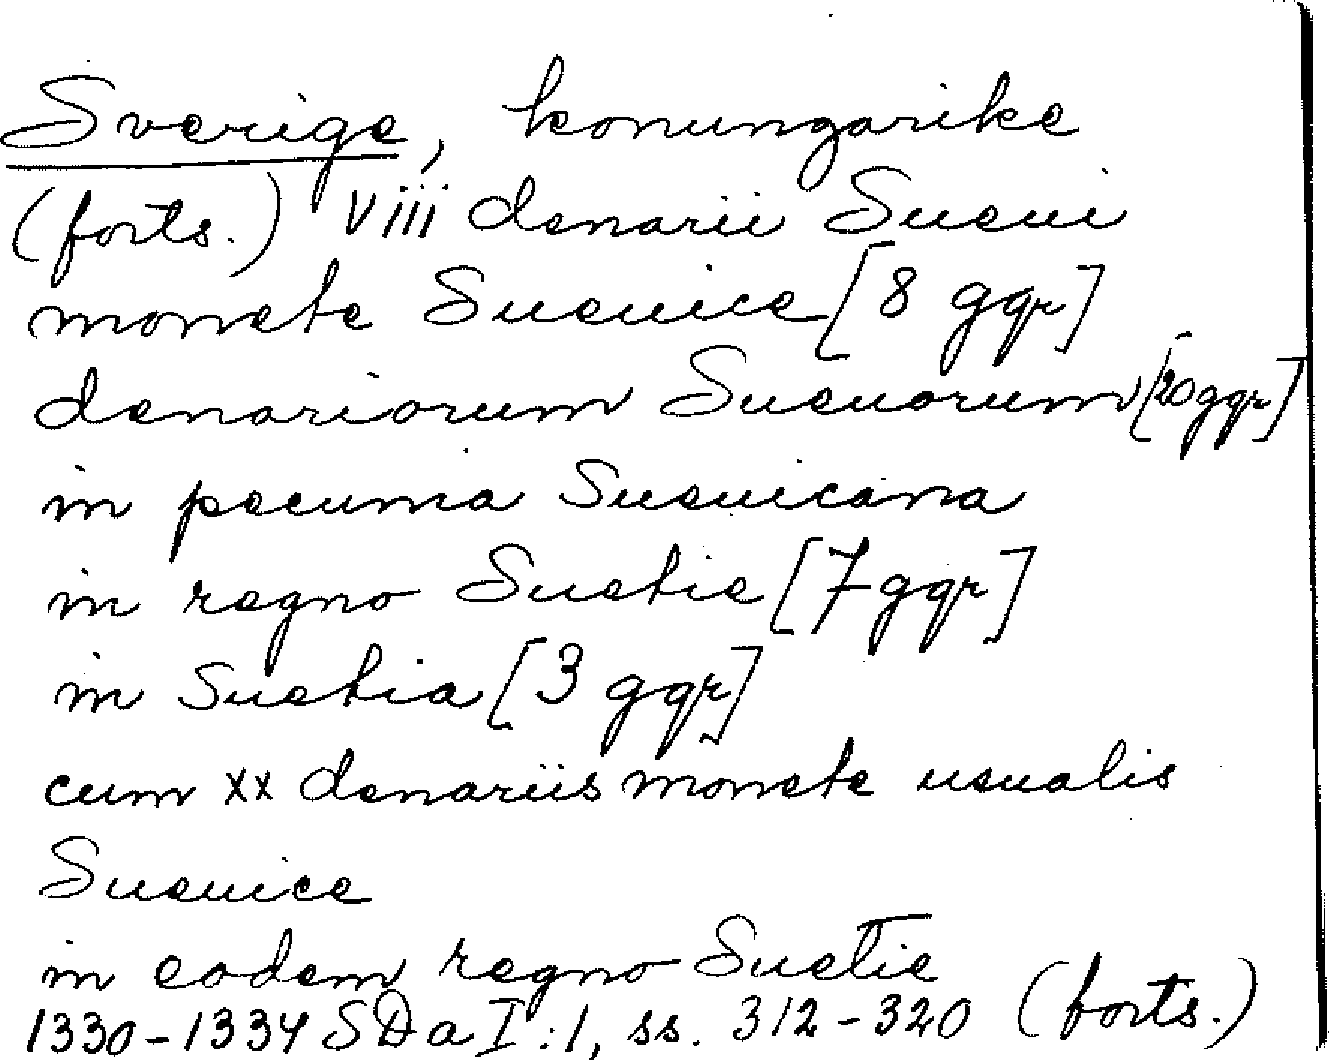 Sverige, konungarike
(forts.) viii denarii Sueui
monete Sueuice [8 ggr]
denariorum Sueuorum [20 ggr]
in pecunia Sueuicana
in regno Suetie [7 ggr]
in Suetia [3 ggr]
cum xx denariis monete usualis
Sueuice
in eodem regno Suetie
1330-1334 SDa I:1, ss. 312-320 (forts.)